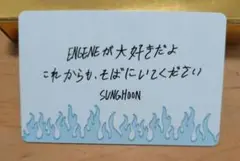 ENGENEが大好きだよ
これからも、そばにいてください
SUNGHOON